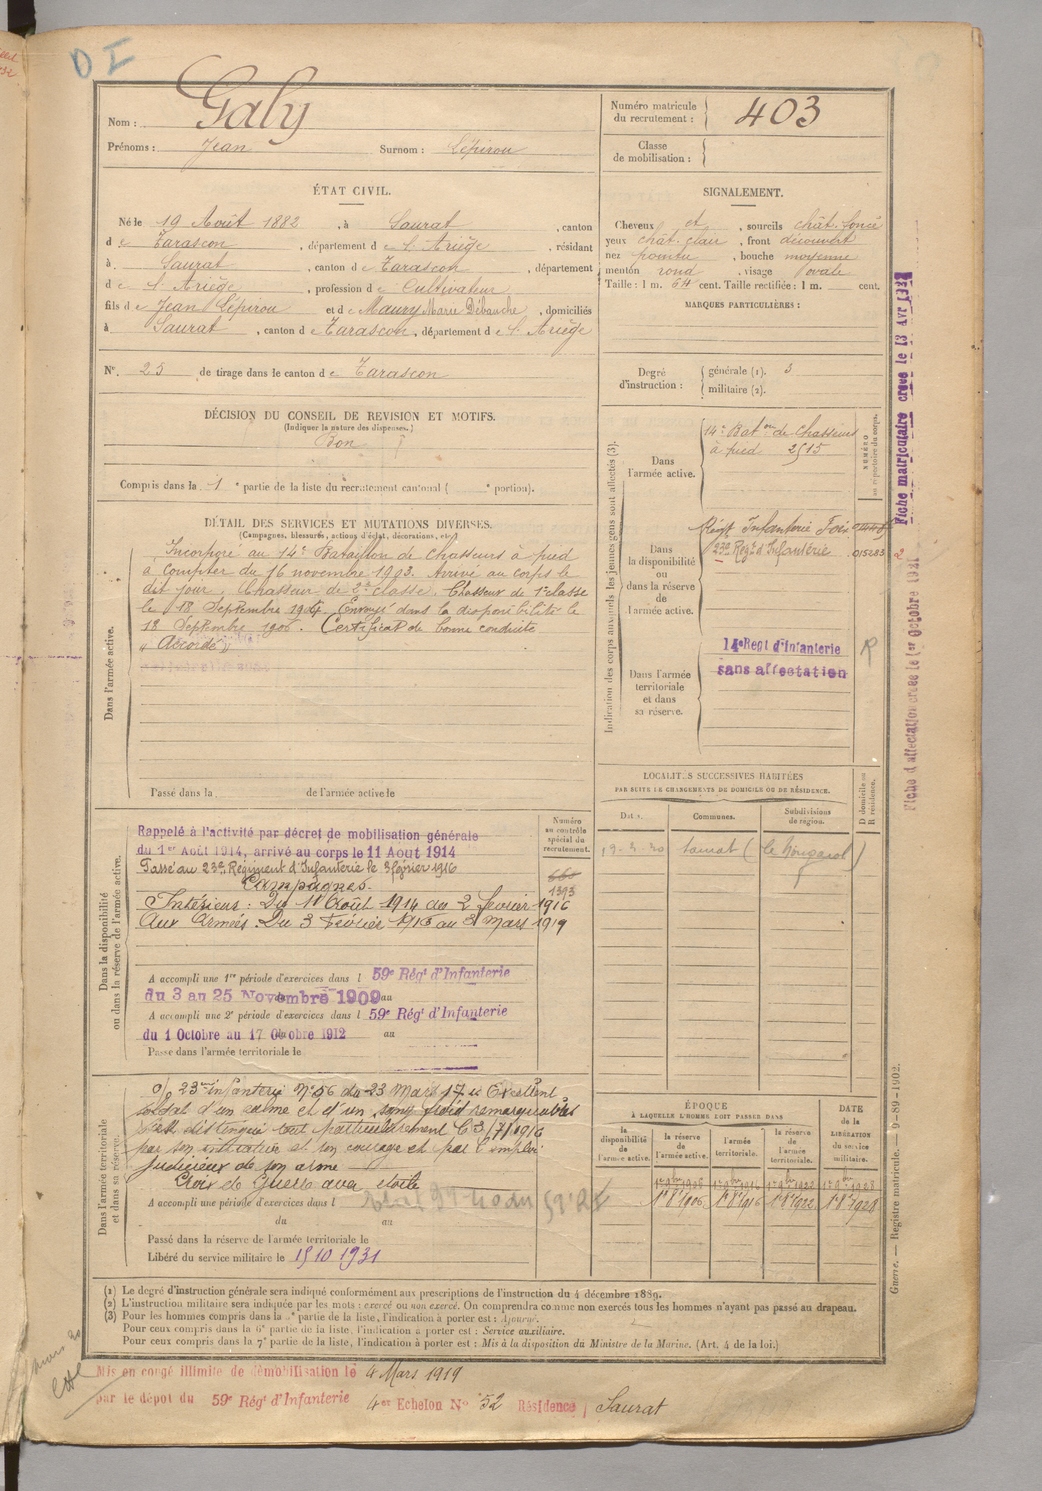 D I
Nom : Galy
Prénoms : Jean Surnom : Lépirou
Numéro matricule
du recrutement : 403
Classe
de mobilisation :
ÉTAT CIVIL.
Né le 19 Août 1882, à Saurat, canton
de Tarascon, département de l'Ariège, résidant
à Saurat, canton de Tarascon, département
de l'Ariège, profession de Cultivateur
fils de Jean Lépirou et de Maury Marie Débauche, domiciliés
à Saurat, canton de Tarascon, département de l'Ariège
N° 25 de tirage dans le canton de Tarascon
SIGNALEMENT.
Cheveux et, sourcils chât. foncé
yeux chât. clair, front découvert
nez pointu, bouche moyenne
menton rond, visage ovale
Taille : 1 m. 64 cent. Taille rectifiée : 1 m. cent.
MARQUES PARTICULIÈRES :
Degré
d'instruction :
générale (1). 3
militaire (2).
DÉCISION DU CONSEIL DE REVISION ET MOTIFS.
(Indiquer la nature des dispenses.)
Bon
Compris dans la 1e partie de la liste du recrutement cantonal ( e portion).
DÉTAIL DES SERVICES ET MUTATIONS DIVERSES.
(Campagnes, blessures, actions d'éclat, décorations, etc.)
Dans l'armée active.
Incorporé au 14e Bataillon de chasseurs à pied
à compter du 16 novembre 1903. Arrivé au corps le
dit jour. Chasseur de 2e classe. Chasseur de 1e classe
le 18 Septembre 1904. Envoyé dans la disponibilité le
18 Septembre 1906. Certificat de bonne conduite
"Accordé"
Passé dans la de l'armée active le
Indication des corps auxquels les jeunes gens sont affectés (3).
NUMÉRO
au répertoire du corps.
Dans
l'armée active.
14e Baton de Chasseurs
à pied 2515
Dans
la disponibilité
ou
dans la réserve
de
l'armée active.
Régt Infanterie Foix
23e Régt d'Infanterie 015283
Dans l'armée
territoriale
et dans
sa réserve.
14e Regt d'Infanterie
sans affectation
R
Fiche matriculaire creee le 13 Avr 1921
Fiche d'affectation creee le 1er Octobre 1921
LOCALITÉS SUCCESSIVES HABITÉES
PAR SUITE DE CHANGEMENTS DE DOMICILE OU DE RÉSIDENCE.
D domicile ou
R résidence.
Dates. Communes. Subdivisions
de région.
Dans la disponibilité
ou dans la réserve de l'armée active.
Numéro
au contrôle
spécial du
recrutement.
1393
Rappelé à l'activité par décret de mobilisation générale
du 1er Août 1914, arrivé au corps le 11 Août 1914
Passé au 23e Régiment d'Infanterie le 3 février 1916
Campagnes.
Intérieur : Du 11 Août 1914 au 2 février 1916
Aux Armées : Du 3 Février 1916 au 3 Mars 1919
A accompli une 1re période d'exercices dans l 59e Régt d'Infanterie
du 3 au 25 Novembre 1909 au
A accompli une 2e période d'exercices dans l 59e Régt d'Infanterie
du 1 Octobre au 17 Octobre 1912 au
Passé dans l'armée territoriale le
Dans l'armée territoriale
et dans sa réserve.
O/ 23e infanterie N° 56 du 23 Mars 17 "Excellent
soldat d'un calme et d'un sang froid remarquables
s'est distingué tout particulièrement le 3/7/1916
par son initiative et son courage et par l'emploi
judicieux de son arme
Croix de Guerre avec étoile
A accompli une période d'exercices dans l
du au
Passé dans la réserve de l'armée territoriale le
Libéré du service militaire le 15 10 1931
ÉPOQUE
À LAQUELLE L'HOMME DOIT PASSER DANS
la
disponibilité
de
l'armée active.
la réserve
de
l'armée active.
l'armée
territoriale.
la réserve
de
l'armée
territoriale.
DATE
de la
LIBÉRATION
du service
militaire.
1r 8b 1906. 1r 8b 1916 1r 8b 1922. 1r 8b 1928
(1) Le degré d'instruction générale sera indiqué conformément aux prescriptions de l'instruction du 4 décembre 1889.
(2) L'instruction militaire sera indiquée par les mots : exercé ou non exercé. On comprendra comme non exercés tous les hommes n'ayant pas passé au drapeau.
(3) Pour les hommes compris dans la 2e partie de la liste, l'indication à porter est : Ajourné.
Pour ceux compris dans la 6e partie de la liste, l'indication à porter est : Service auxiliaire.
Pour ceux compris dans la 7e partie de la liste, l'indication à porter est : Mis à la disposition du Ministre de la Marine. (Art. 4 de la loi.)
Guerre. — Registre matricule. — 9-89-1902.
Mis en congé illimité de démobilisation le 4 Mars 1919
par le dépôt du 59e Régt d'Infanterie 4er Echelon N° 52 Résidence Saurat